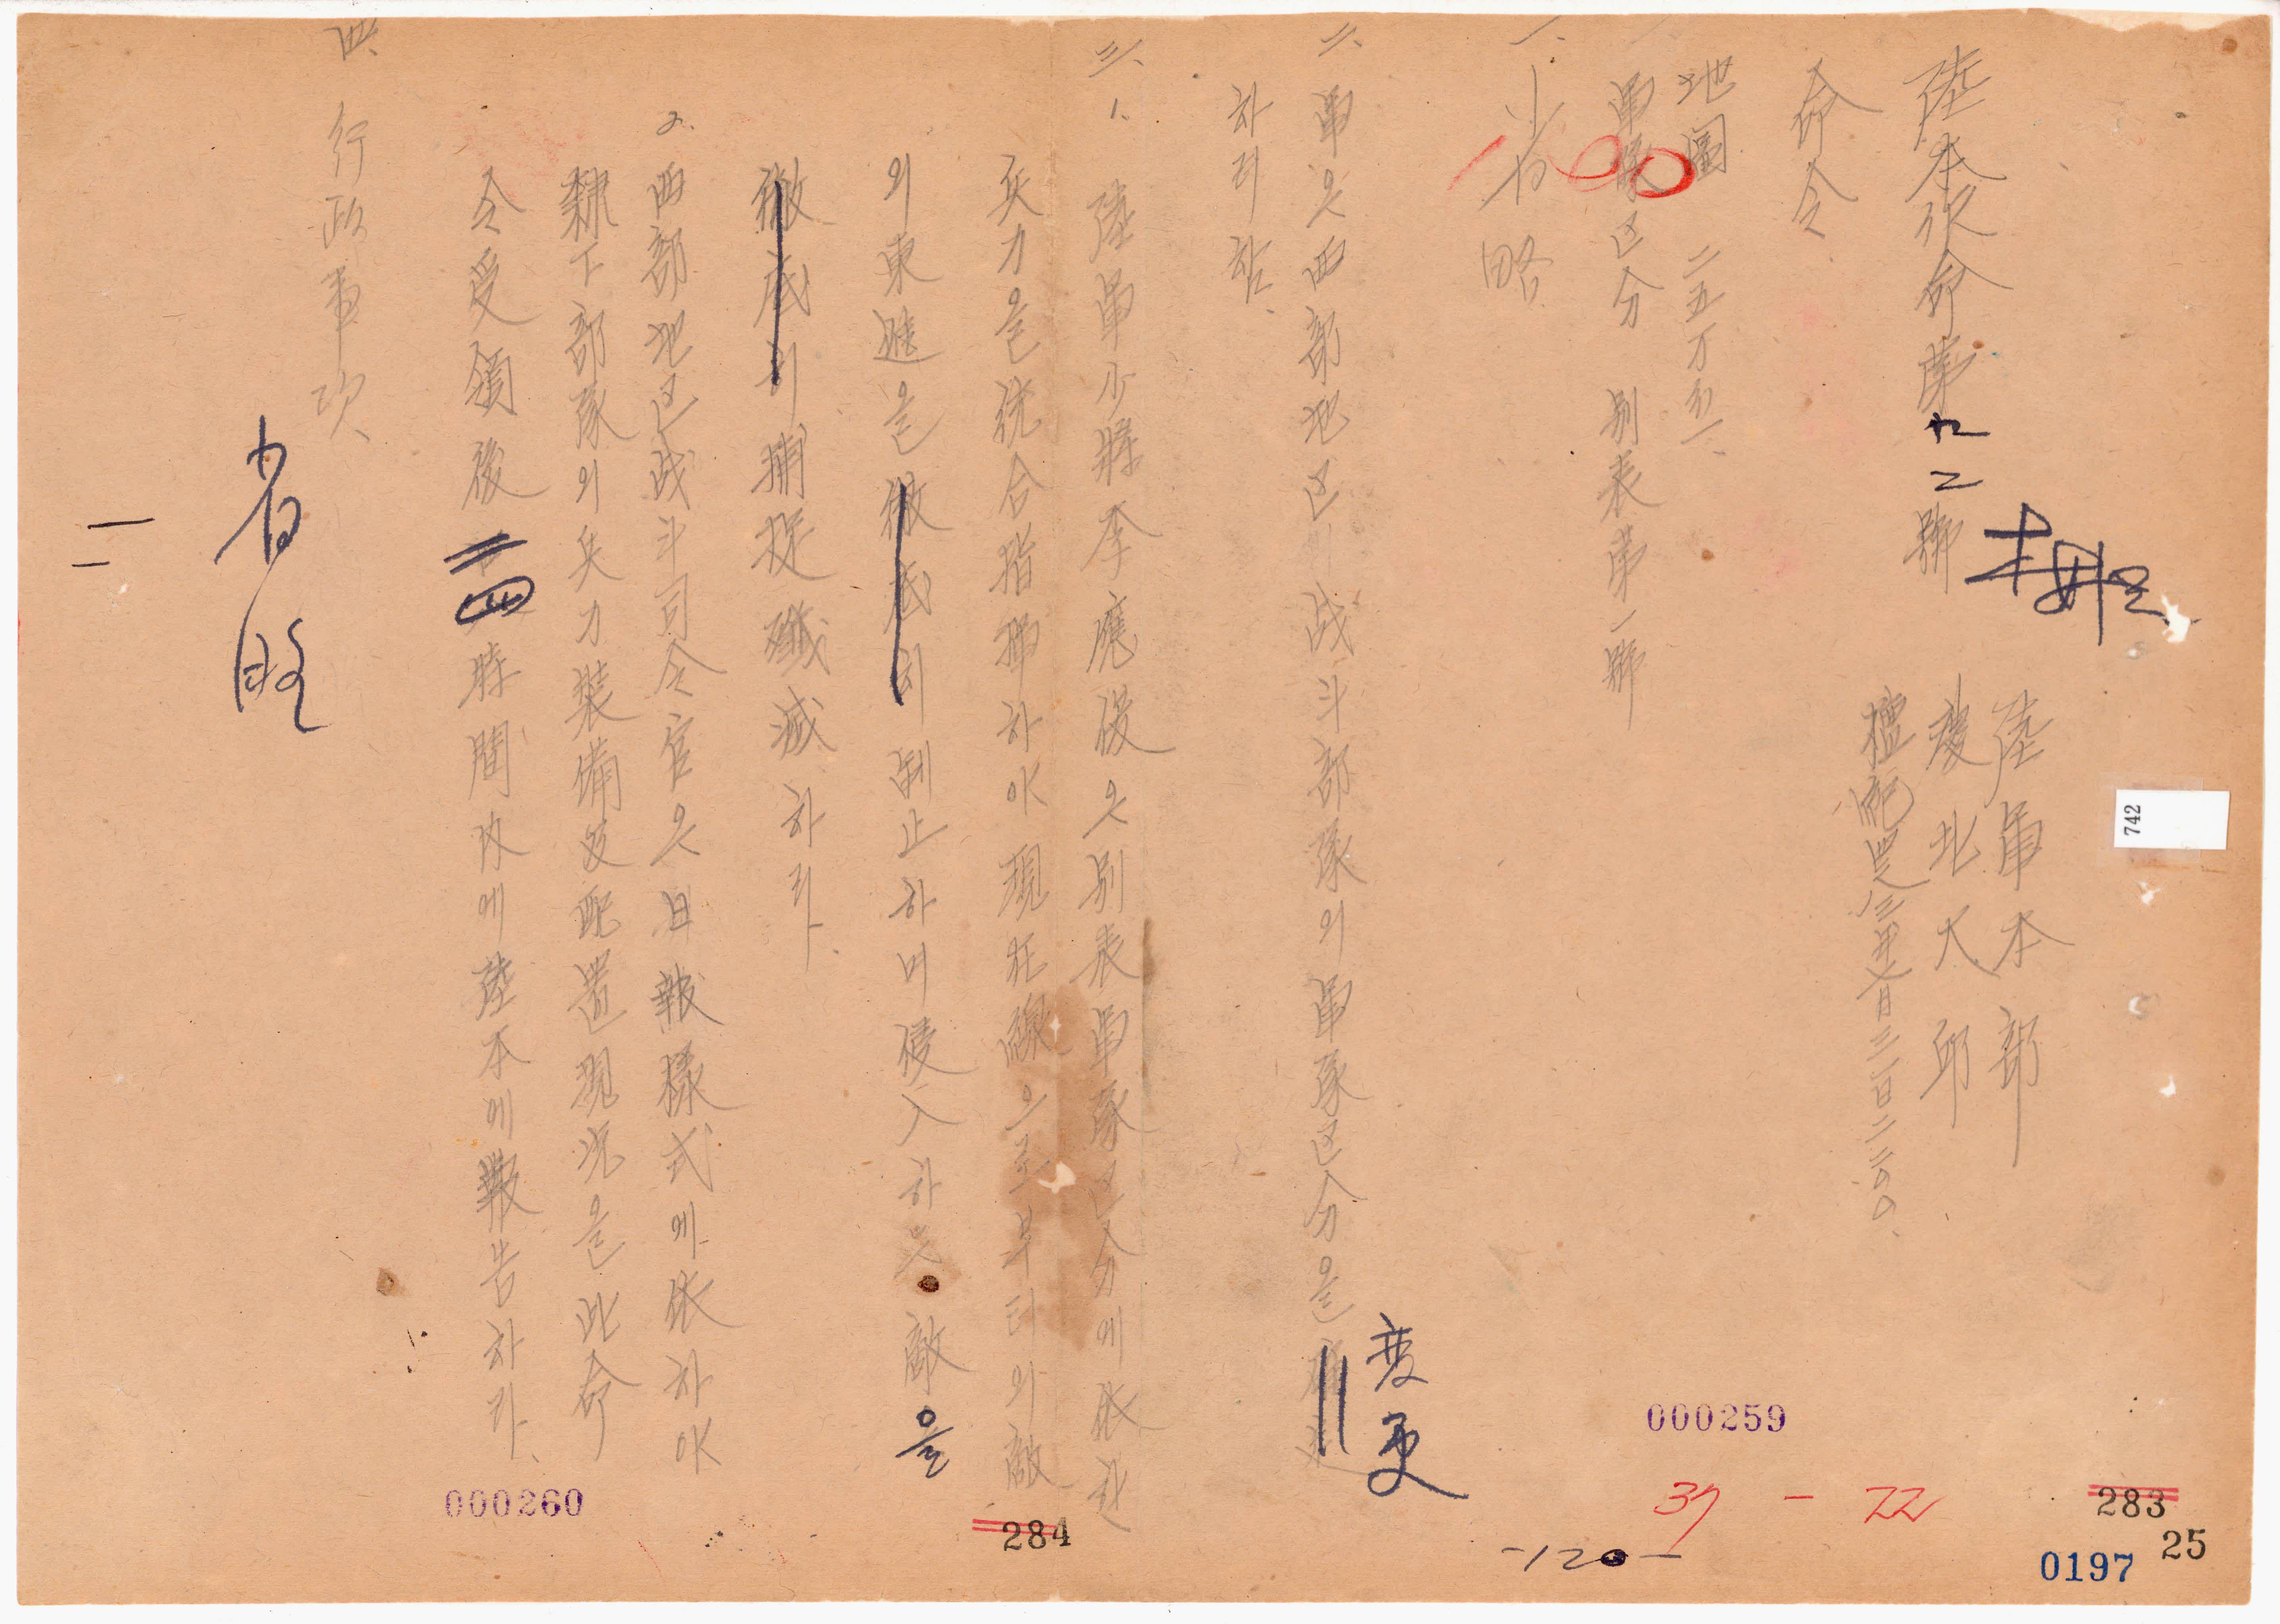 陸本作命第九二號
陸軍本部
慶北大邱
檀紀四二八三年七月二三日二二00
命令
地圖 二五万分一、
軍隊区分 別表第一號
一、省略
二、軍은 西部地区 战斗部隊의 軍隊区分을 変更
하리함、
三、1. 陸軍少將 李應俊은 別表軍隊区分에 依한
兵力을 統合指揮하야 現在線으로부터의 敵
의 東進을 徹底히 阻止하며 侵入하는 敵을
徹底히 捕捉殲滅하라.
2. 西部地区战斗司令官은 日報樣式에 依하야
隸下部隊의 兵力裝備及配置現況을 此命
令受領後 二四時間內에 陸本에 報告하라、
四、行政事項、
省略
000259
000260
283
284
25
0197
37 - 22
-120-
742